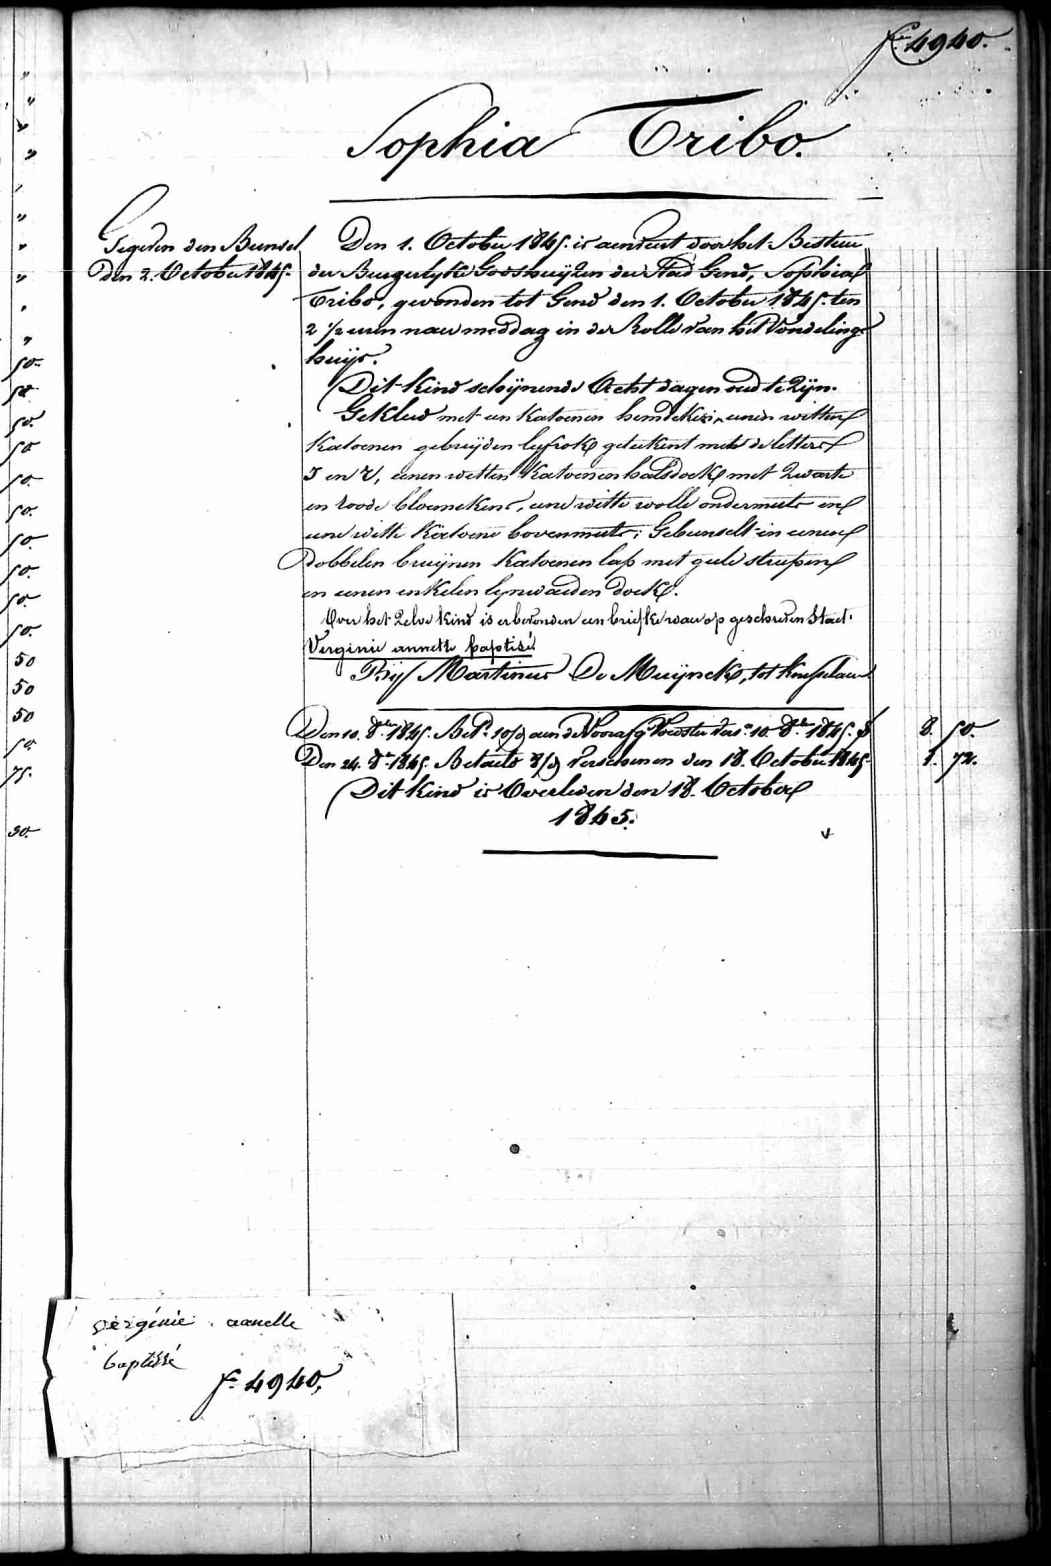 fo. 4940.
Sophia Tribo.
Gegeven den Bunsel
Den 2. October 1845.
Den 1. October 1845. is aenveert door het Bestuur
der Burgerlyke Godshuijzen der Stad Gend, Sophia
Tribo, gevonden tot Gend den 1. October 1845. ten
2 1/2 uren naer middag in de Rolle van het Vondeling-
huijs.
Dit kind schijnende Acht dagen oud te zijn.
Gekleed met een katoenen hemdeken, eenen witten
katoenen gebreijden lyfrok geteekent met de letters
J en V, eenen witten katoenen halsdoek met zwarte
en roode bloemekens, eene witte wolle ondermuts en
eene witte katoene bovenmuts; Gebunselt in eenen
dobbelen bruijnen katoenen lap met geele streepen
en eenen enkelen lynwaeden doek.
Over het zelve kind is er bevonden een briefke waer op geschreven staet:
Verginie annette baptisé
Bij Martinus De Muijnck, tot
Den 10. 8bre 1845. Bet. aen de Voedster 10. 8bre 1845. 8. 50.
Den 24. 8bre 1845. Betaelt verschenen den 18. October 1845. 1. 72.
Dit kind is Overleden den 18. October
1845.
50.
50
50.
50
50.
50.
50.
50.
50.
50.
50
50
50
50.
75.
30.
vèrgénie annelle
baptissé
fo. 4940.